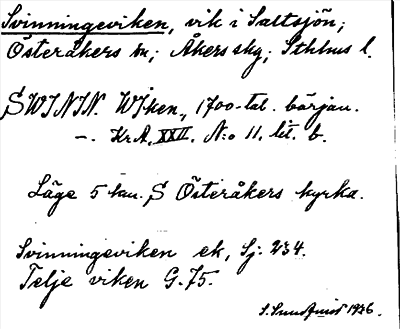 Svinningeviken, vik i Saltsjön;
Österåkers sn; Åkers skg; Sthlms l.
SWININ. Wiken., 1700-tal. börjau.
—. Kr.A. XXII. N:o 11. lit. b.
Läge 5 km. S Österåkers kyrka.
Svinningeviken ek, Sj: 234.
Telje viken G. 75.
1926.